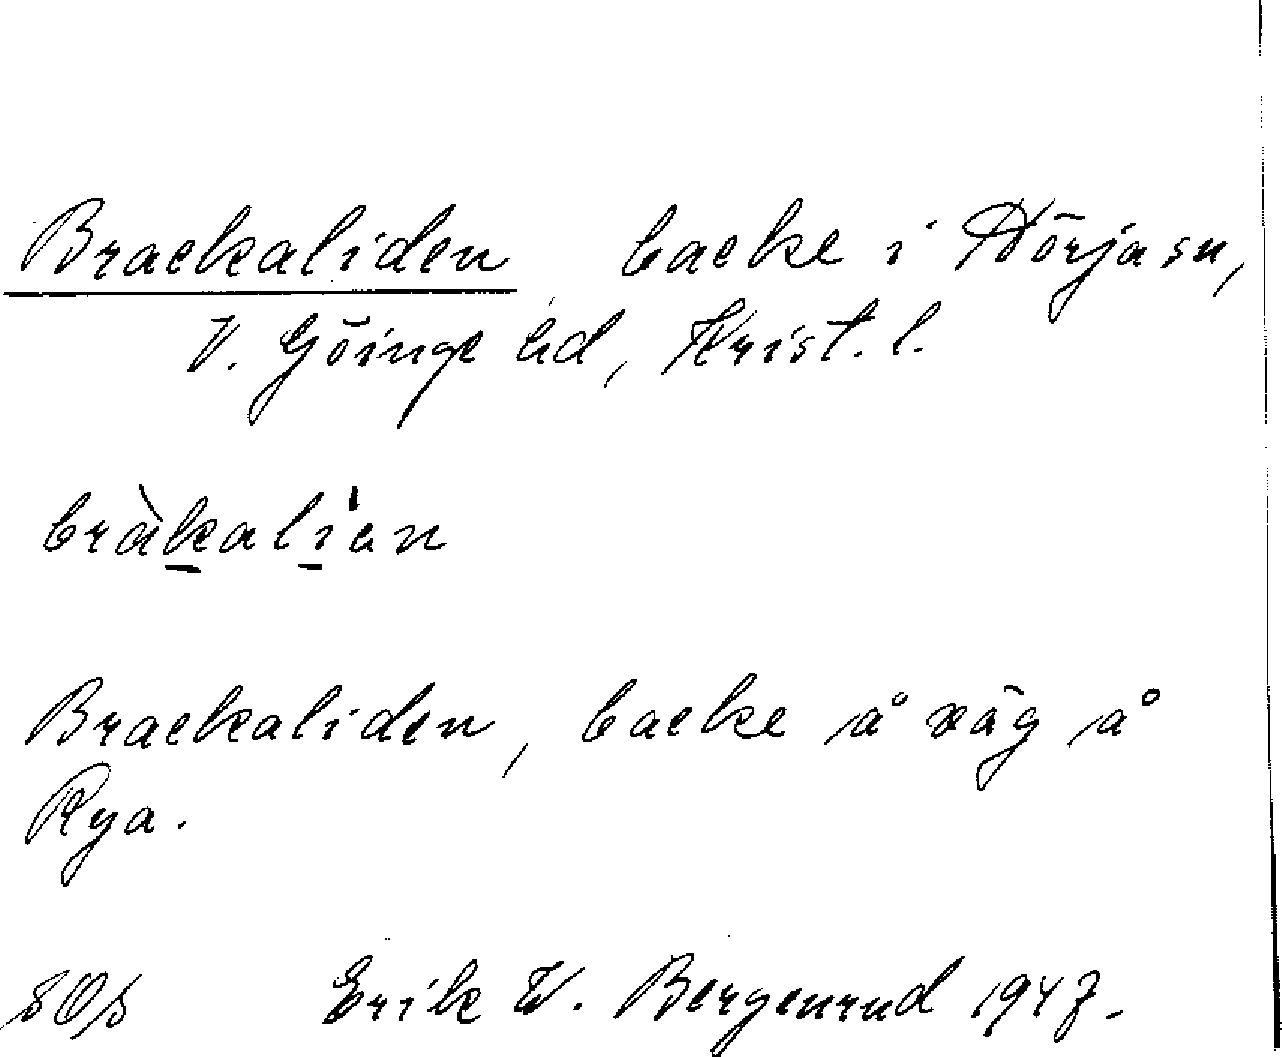 Brackaliden backe i Nörja sn,
V. Göinge hd, Krist. l.
bràkalían
Brackaliden, backe å väg å
Rya.
SOS Erik W. Bergenrud 1947.